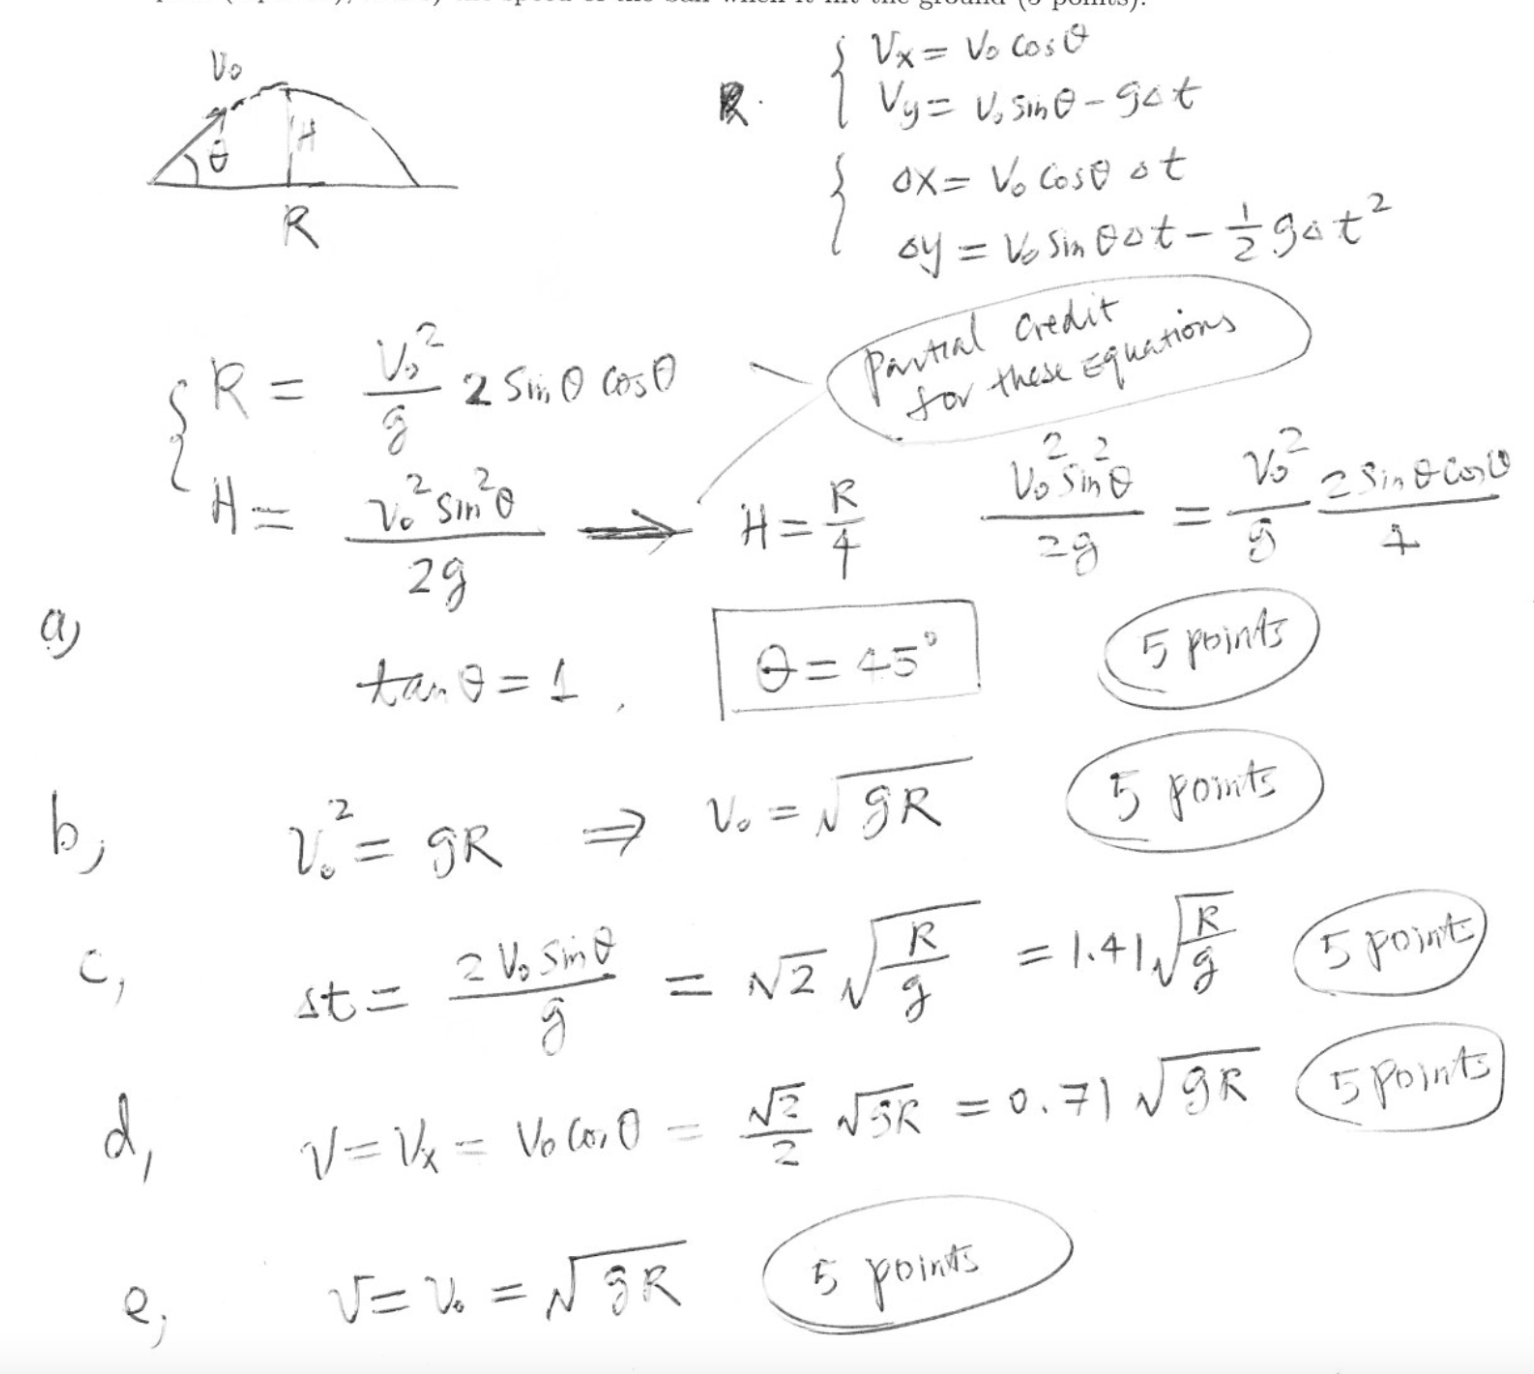 the speed of the ball when it hit the ground (5 points).
V₀
θ
H
R
R.
{ Vx = V₀ cosθ
Vy = V₀ sinθ - gΔt
{ Δx = V₀ cosθ Δt
Δy = V₀ sinθ Δt - 1/2 gΔt²
Partial credit
for these Equations
{ R = V₀²/g 2 sinθ cosθ
H = V₀² sin²θ / 2g ⇒ H = R/4 V₀² sin²θ / 2g = V₀²/g 2 sinθ cosθ / 4
a,
tanθ = 1, θ = 45° 5 points
b, V₀² = gR ⇒ V₀ = √gR 5 points
c, Δt = 2V₀ sinθ / g = √2 √R/g = 1.41 √R/g 5 points
d, V = Vx = V₀ cosθ = √2/2 √gR = 0.71 √gR 5 points
e, V = V₀ = √gR 5 points